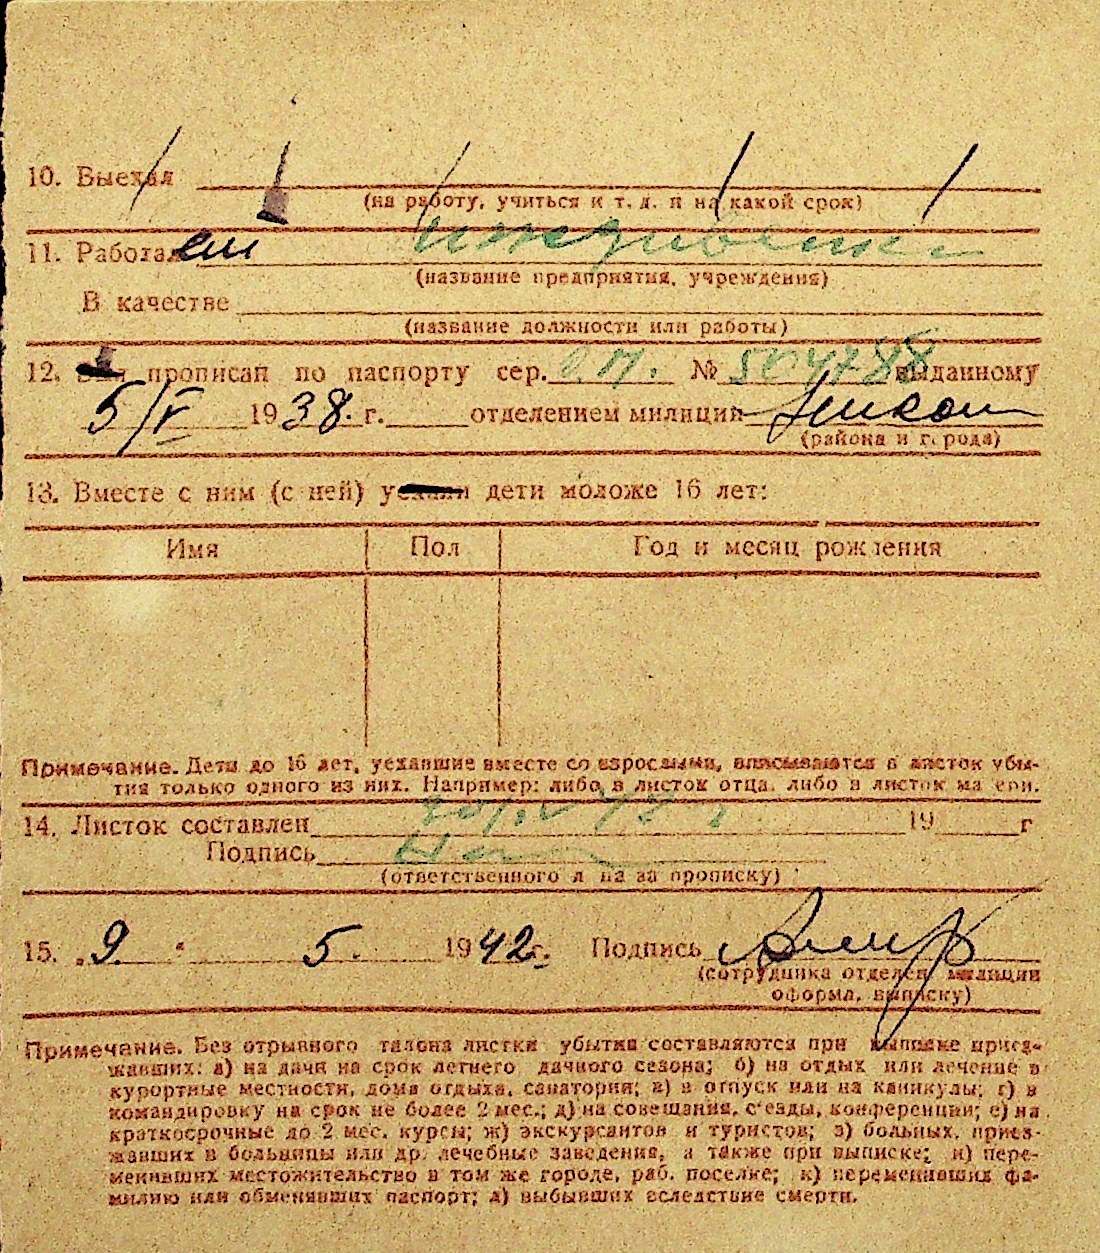 10. Выехал
(на работу, учиться и т. д. и на какой срок)
11. Работал иждивенка
(название предприятия, учреждения)
В качестве
(название должности или работы)
12. прописан по паспорту сер. № 504788 выданному
5/V 1938 г. отделением милиции
(района и города)
13. Вместе с ним (с ней) уехали дети моложе 16 лет:
Имя Пол Год и месяц рождения
Примечание. Дети до 16 лет, уехавшие вместе со взрослыми, вписываются в листок убы-
тия только одного из них. Например: либо в листок отца, либо в листок матери.
14. Листок составлен 19 г
Подпись
(ответственного лица за прописку)
15. „9 " 5. 1942 г. Подпись
(сотрудника отделен. милиции
оформл. выписку)
Примечание. Без отрывного талона листки убытия составляются при выписке приез-
жавших: а) на дачи на срок летнего дачного сезона; б) на отдых или лечение в
курортные местности, дома отдыха, санатории; в) в отпуск или на каникулы; г) в
командировку на срок не более 2 мес.; д) на совещания, с'езды, конференции; е) на
краткосрочные до 2 мес. курсы; ж) экскурсантов и туристов; з) больных, приез-
жавших в больницы или др. лечебные заведения, а также при выписке; и) пере-
менивших местожительство в том же городе, раб. поселке; к) переменивших фа-
милию или обменявших паспорт; л) выбывших вследствие смерти.